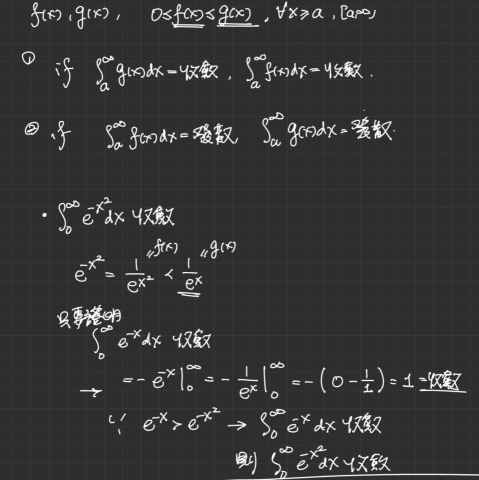 f(x), g(x), 0≤f(x)≤g(x), ∀x≥a, [a,∞)
① if ∫ₐ^∞ g(x)dx = 收斂, ∫ₐ^∞ f(x)dx = 收斂.
② if ∫ₐ^∞ f(x)dx = 發散, ∫ₐ^∞ g(x)dx = 發散.
• ∫₀^∞ e^{-x²}dx 收斂
"f(x) "g(x)
e^{-x²} = 1/e^{x²} < 1/e^x
只要證明
∫₀^∞ e^{-x}dx 收斂
→ = -e^{-x}|₀^∞ = -1/e^x|₀^∞ = -(0 - 1/1) = 1 = 收斂
∵ e^{-x} > e^{-x²} → ∫₀^∞ e^{-x} dx 收斂
則 ∫₀^∞ e^{-x²}dx 收斂